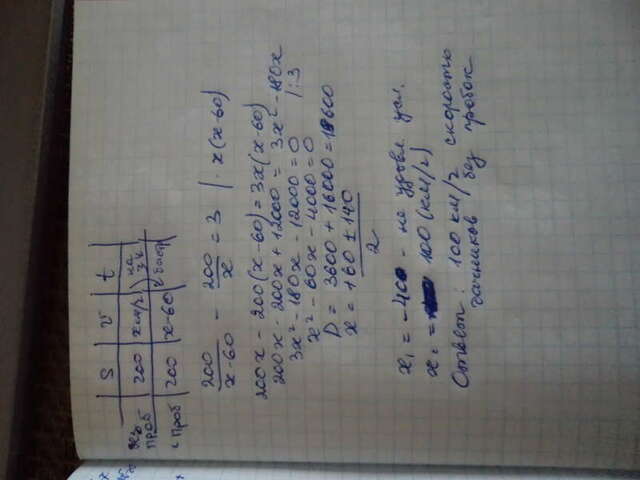 S v t
без проб 200 x км/ч на 3 ч
с проб 200 x-60 быстр
200/(x-60) - 200/x = 3 | · x(x-60)
200x - 200(x-60) = 3x(x-60)
200x - 200x + 12000 = 3x² - 180x
3x² - 180x - 12000 = 0 | :3
x² - 60x - 4000 = 0
D = 3600 + 16000 = 19600
x = (+60 ± 140)/2
x₁ = -40 - не удовл. усл.
x₂ = 100 (км/ч)
Ответ: 100 км/ч скорость
дачников без пробок